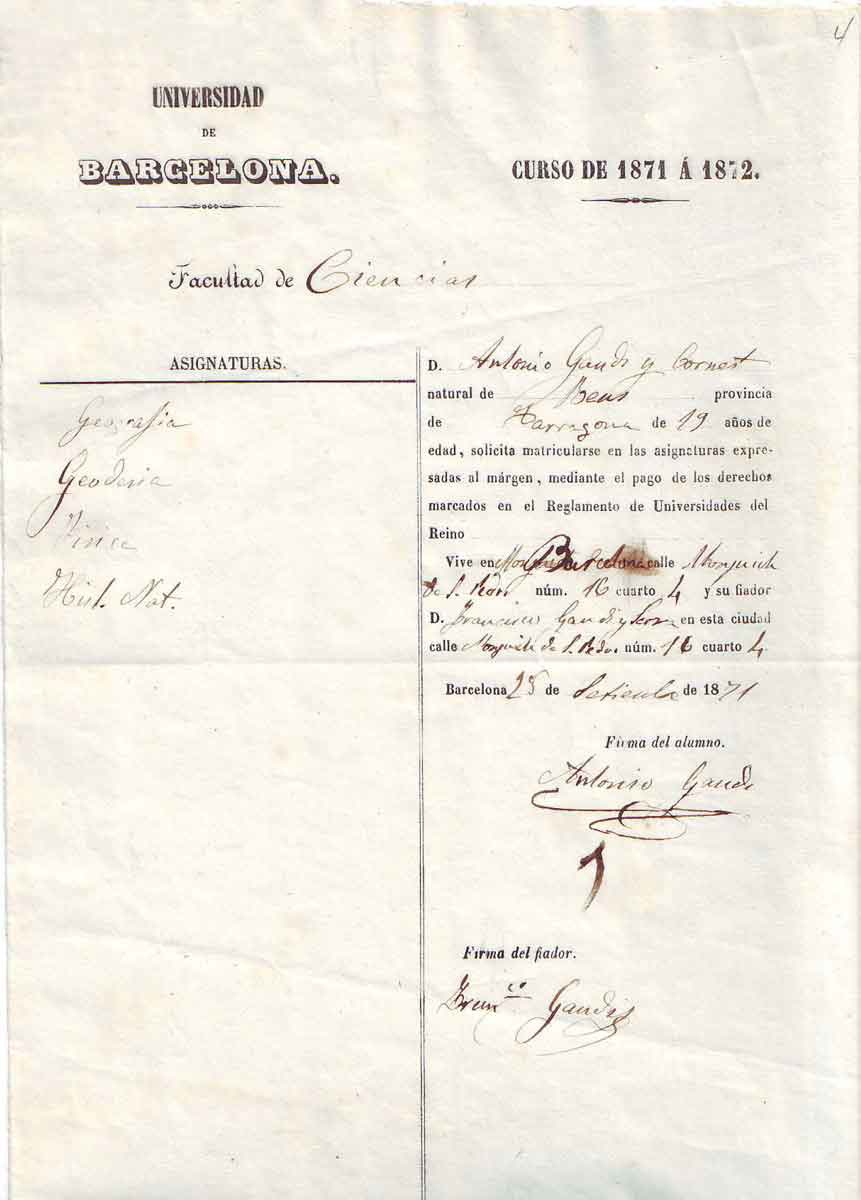 4
UNIVERSIDAD
DE
BARCELONA.
CURSO DE 1871 Á 1872.
Facultad de Ciencias
ASIGNATURAS.
Geografia
Geodesia
Fisica
Hist. Nat.
D. Antonio Gaudi y Cornet
natural de Reus provincia
de Tarragona de 19 años de
edad, solicita matricularse en las asignaturas expre-
sadas al márgen, mediante el pago de los derechos
marcados en el Reglamento de Universidades del
Reino
Vive en Barcelona calle Monjuich
de S. Pedro núm. 16 cuarto 4 y su fiador
D. Francisco Gaudi y Serra en esta ciudad
calle Monjuich de S. Pedro núm. 16 cuarto 4
Barcelona 25 de Setiembre de 1871
Firma del alumno.
Antonio Gaudi
Firma del fiador.
Fran.co Gaudi